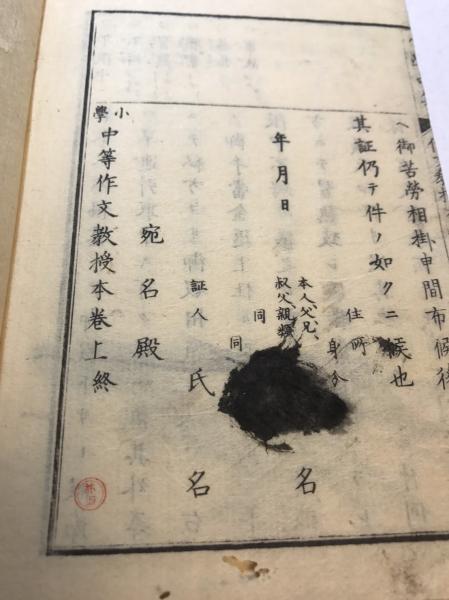 ヘ御苦労相掛申間布候
其証仍テ件ノ如クニ候也
住所 身分
年月日
本人、父兄、叔父、親類 名
同
証人 氏名
宛名殿
小学中等作文教授本巻上終